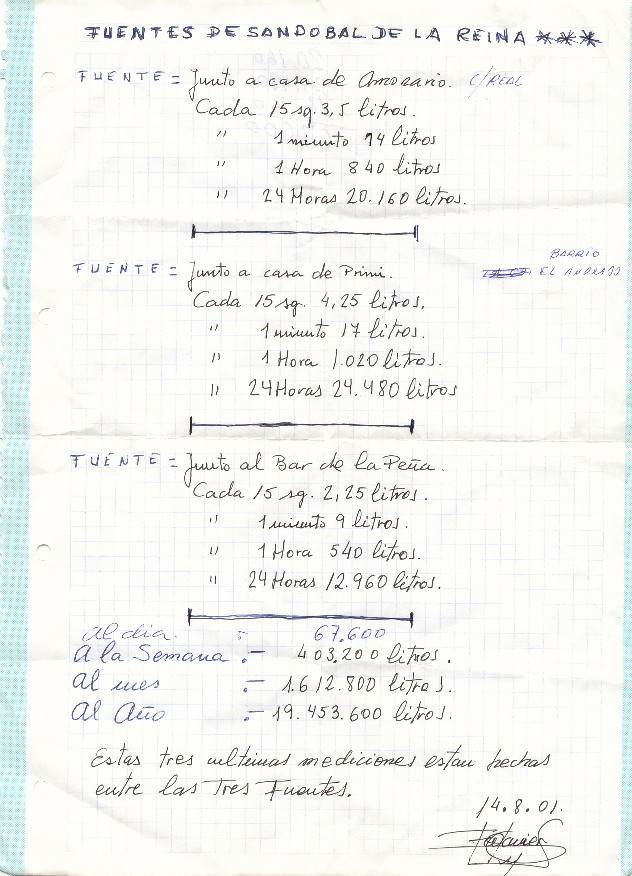 FUENTES DE SANDOBAL DE LA REINA ***
FUENTE = Junto a casa de Amorario. C/REAL
Cada 15 sg. 3,5 litros.
" 1 miunto 14 litros
" 1 Hora 840 litros
" 24 Horas 20.160 litros.
BARRIO
FUENTE = Junto a casa de Primi. EL
Cada 15 sg. 4,25 litros.
" 1 miunto 17 litros.
" 1 Hora 1.020 litros.
" 24 Horas 24.480 litros
FUENTE = Junto al Bar de la Peña.
Cada 15 sg. 2,25 litros.
" 1 miunto 9 litros.
" 1 Hora 540 litros.
" 24 Horas 12.960 litros.
Al dia. :- 67.600
A la Semana :- 403.200 litros.
Al mes :- 1.612.800 litros.
Al Año :- 19.453.600 litros.
Estas tres ultimas mediciones estan hechas
entre las Tres Fuentes.
14.8.01.